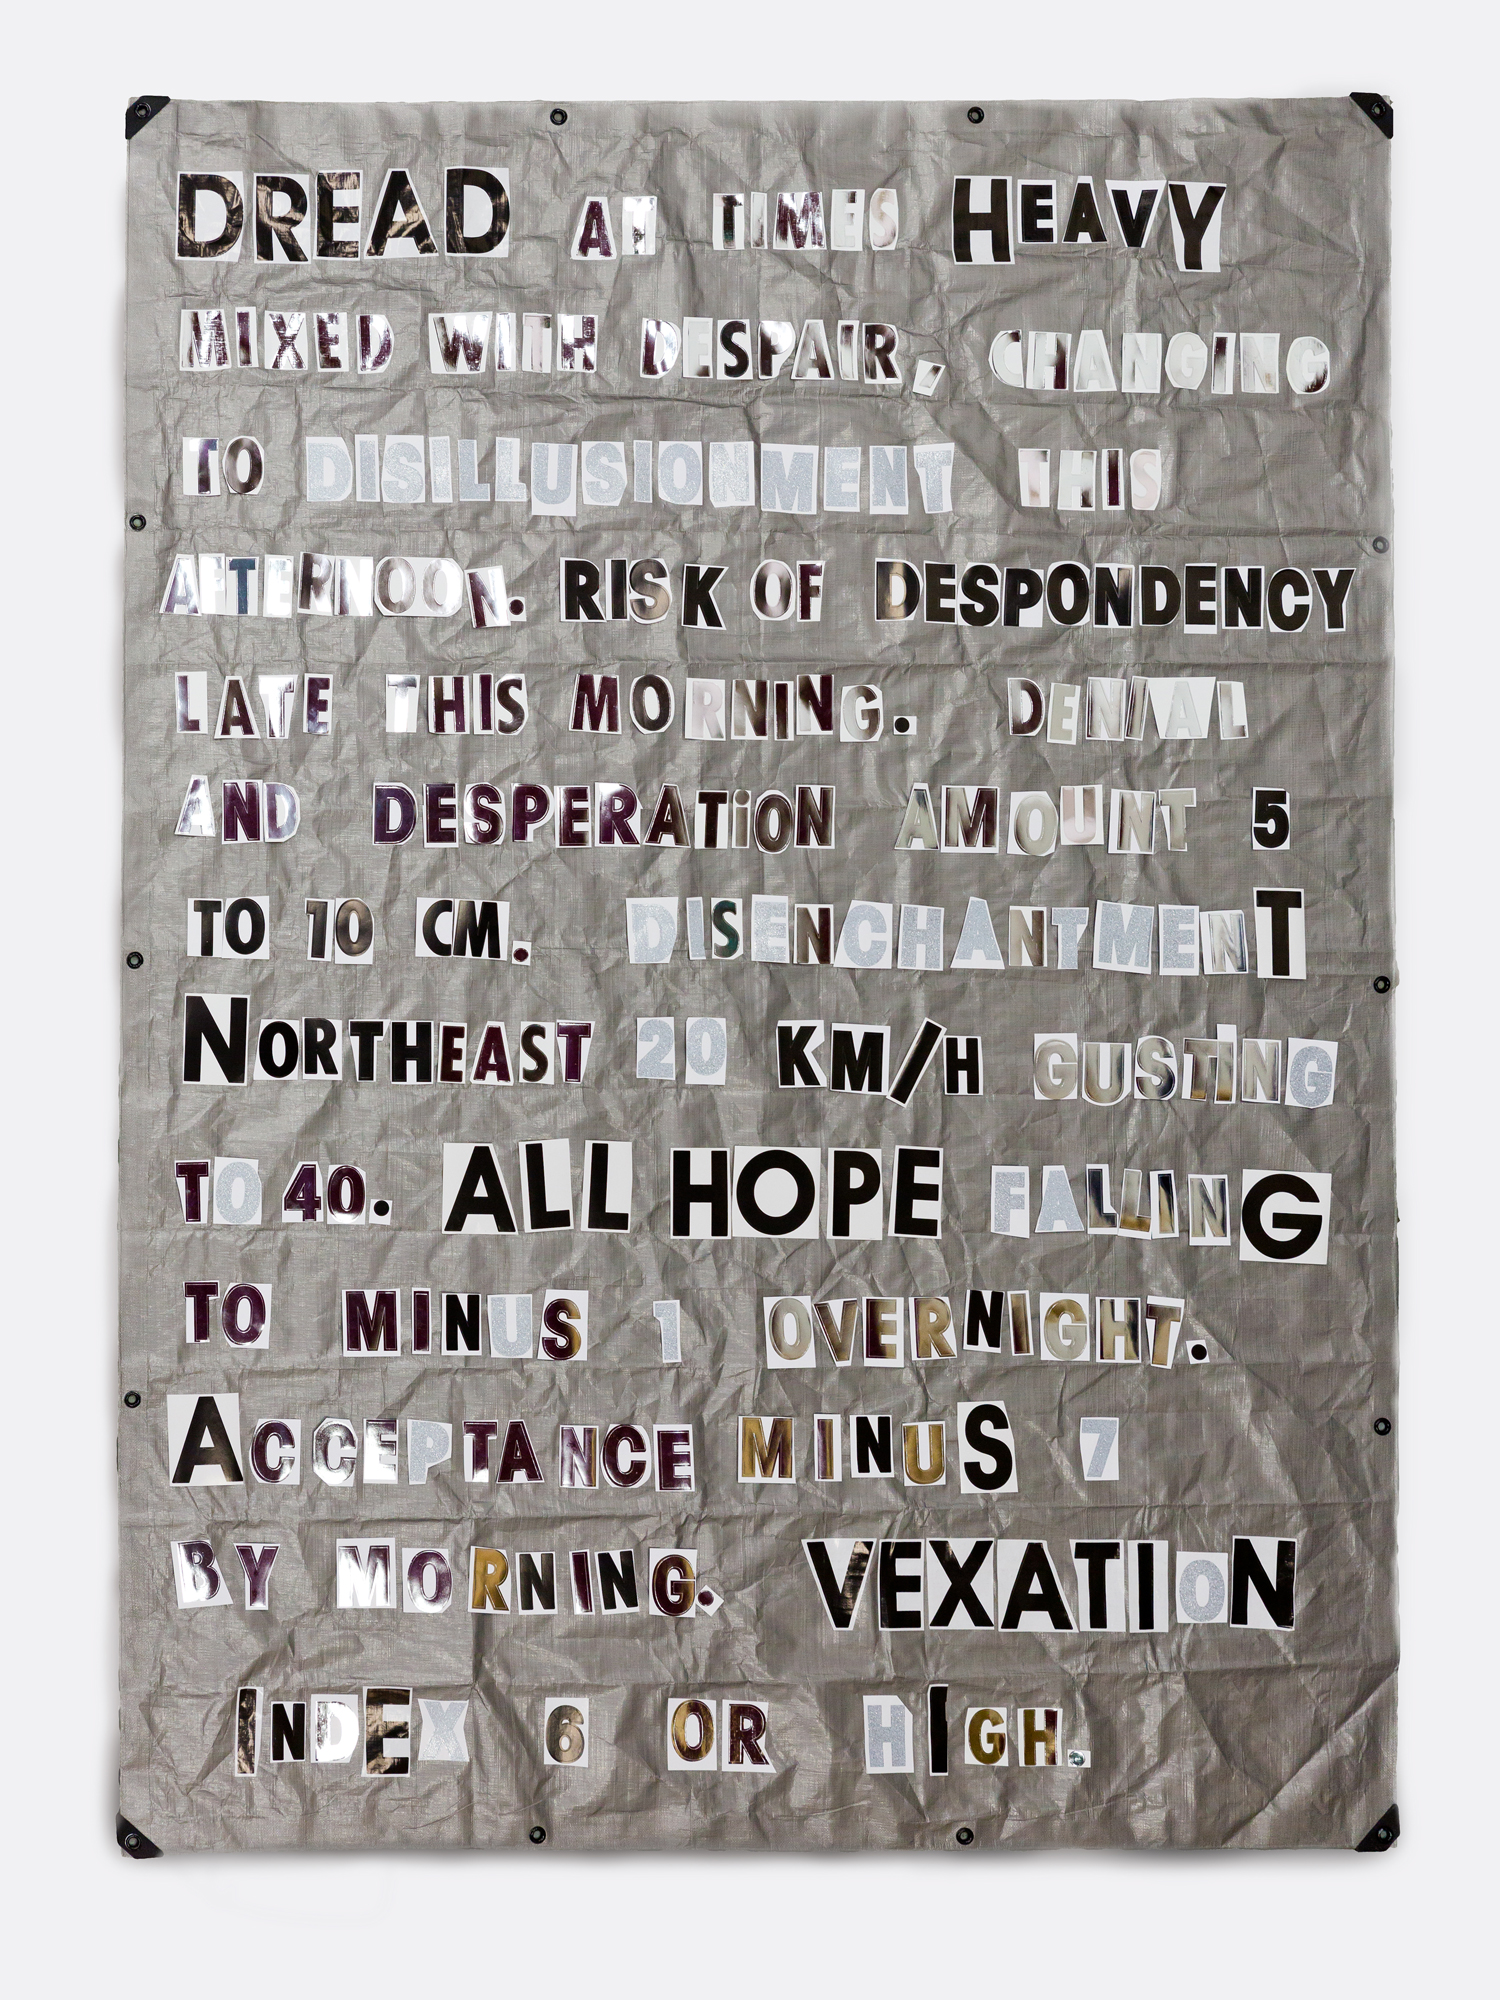 DREAD AT TIMES HEAVY
MIXED WITH DESPAIR, CHANGING
TO DISILLUSIONMENT THIS
AFTERNOON. RISK OF DESPONDENCY
LATE THIS MORNING. DENIAL
AND DESPERATiON AMOUNT 5
TO 10 CM. DISENCHANTMENT
NORTHEAST 20 KM/H GUSTiNG
TO 40. ALL HOPE FALLING
TO MINUS 1 OVERNIGHT.
ACCEPTANCE MINUS 7
BY MORNING. VEXATION
INDEX 6 OR HIGH.